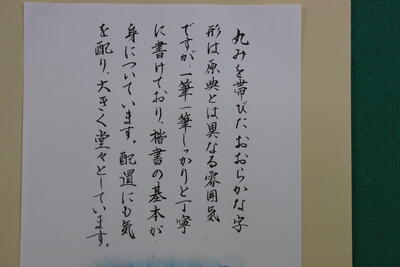 丸みを帯びたおおらかな字
形は原典とは異なる雰囲気
ですが、一筆一筆しっかりと丁寧
に書けており、楷書の基本が
身についています。配置にも気
を配り、大きく堂々としています。